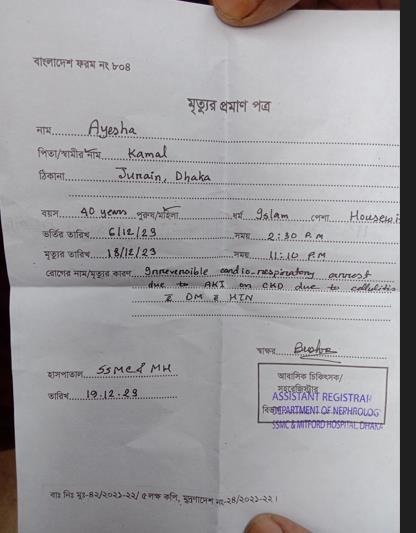 বাংলাদেশ ফরম নং ৮০৪
মৃত্যুর প্রমাণ পত্র
নাম Ayesha
পিতা/স্বামীর নাম Kamal
ঠিকানা Jurain, Dhaka
বয়স 40 years পুরুষ/মহিলা ধর্ম Islam পেশা Housewi
ভর্তির তারিখ 6/12/23 সময় 2:30 P.M
মৃত্যুর তারিখ 18/12/23 সময় 11:10 P.M
রোগের নাম/মৃত্যুর কারণ Irreversible cardio-respiratory arrest
due to AKI on CKD due to cellulitis
DM HTN
স্বাক্ষর
হাসপাতাল SSMC & MH
তারিখ 19.12.23
আবাসিক চিকিৎসক/
সহরেজিস্ট্রার
ASSISTANT REGISTRAR
DEPARTMENT OF NEPHROLOG
SSMC & MITFORD HOSPITAL, DHAKA
বাঃ নিঃ মুঃ-৪২/২০২১-২২/ ৫ লক্ষ কপি, মুদ্রণাদেশ নং-২৪/২০২১-২২।